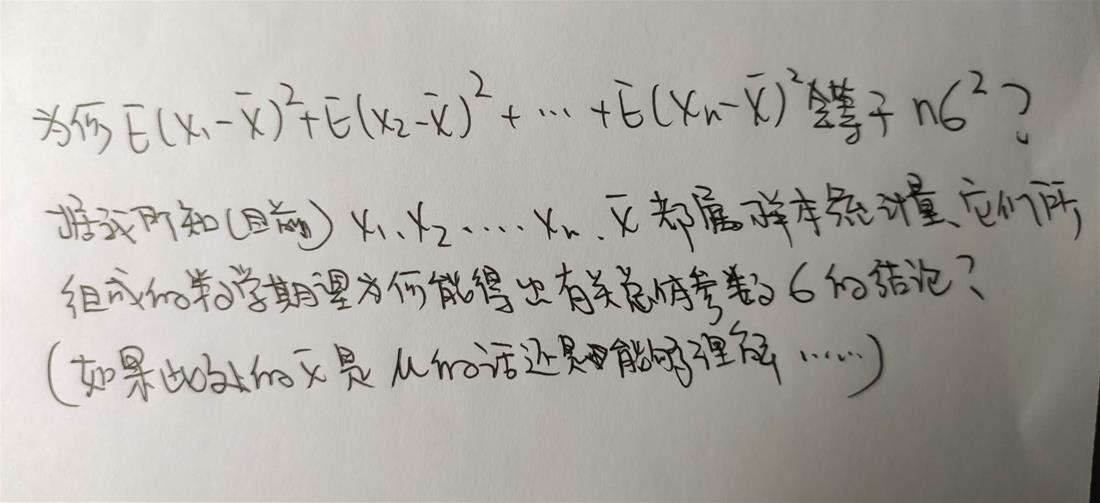 为何 E(x₁-x̄)²+E(x₂-x̄)²+…+E(xₙ-x̄)²会等于 nσ²?
据我所知(目前) x₁、x₂……xₙ、x̄ 都属于样本统计量、它们所
组成的数学期望为何能得出有关总体参数σ的结论?
(如果此处的x̄是μ的话还是能够理解……)